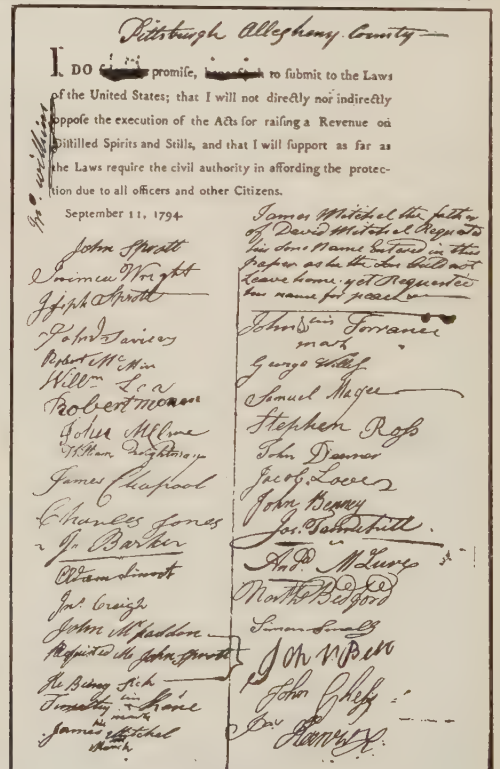 Pittsburgh Allegheny County
I DO promise, to submit to the Laws
of the United States; that I will not directly nor indirectly
oppose the execution of the Acts for raising a Revenue on
Distilled Spirits and Stills, and that I will support as far as
the Laws require the civil authority in affording the protec-
tion due to all officers and other Citizens.
September 11, 1794.
Jno Wilkins
John Sprott
Wright
Joseph Sprott
John Davies
Robert McMin
Willm Lea
Robert
John McClure
William
James Chapool
Charles Jones
Jn Barker
Adam
Jno. Creigh
John McFadden
Requested Me John Sprott
He Being Sick
Timothy his Kane
mark
James his Mitchel
Mark
James Mitchel the father
of David Mitchel Requests
his Sons Name Entared in this
paper as he the Son Could not
Leave home, yet Requested
his name for peace
John his Torrance
mark
George Wills
Samuel Magee
Stephen Ross
John
Jacob
John Benney
Jos. Vandebitt
Andw McLure
Nathl Bedford
Simon Small
John N Bell
John